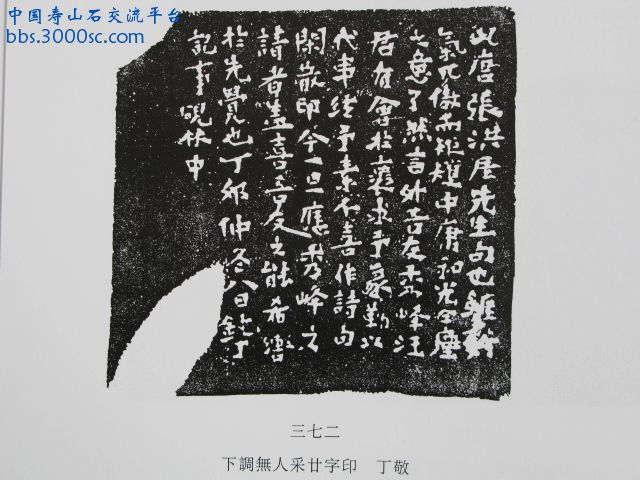 中国寿山石交流平台
bbs.3000sc.com
此唐張洪厓先生句也雖辭
氣兀傲而中庸和光仝塵
之意了然言外吾友秀峰汪
君有會於衷求予篆勒以
代予素不喜作詩句
閑散印今一旦應秀峰之
請者蓋喜吾友之能希
於先覺也丁卯仲冬八日鈍丁
記事硯林中
三七二
下調無人采廿字印 丁敬